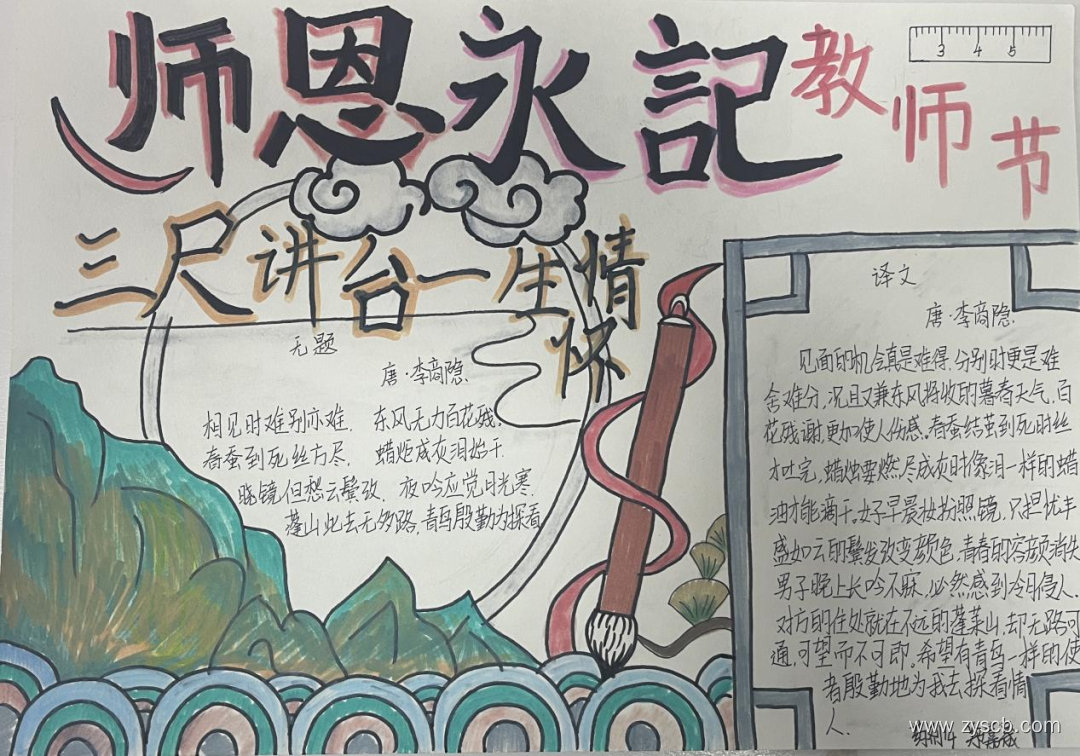 师恩永記
教师节
3 4 5
三尺讲台一生情
怀
无题
唐·李商隐
相见时难别亦难， 东风无力百花残。
春蚕到死丝方尽， 蜡炬成灰泪始干
晓镜但想云鬓改， 夜吟应觉月光寒.
蓬山此去无多路，青鸟殷勤为探看
译文
唐·李商隐
见面的机会真是难得，分别时更是难
舍难分，况且又兼东风将收的暮春天气，百
花残谢，更加使人伤感。春蚕结茧到死时丝
才吐完，蜡烛要燃尽成灰时像泪一样的蜡
油才能滴干。女子早晨妆扮照镜，只担忧丰
盛如云的鬓发改变颜色，青春的容颜消失
男子晚上长吟不寐，必然感到冷月侵人.
对方的住处就在不远的蓬莱山，却无路可
通，可望而不可即，希望有青鸟一样的使
者殷勤地为我去探看情
人.
www.zyscb.com